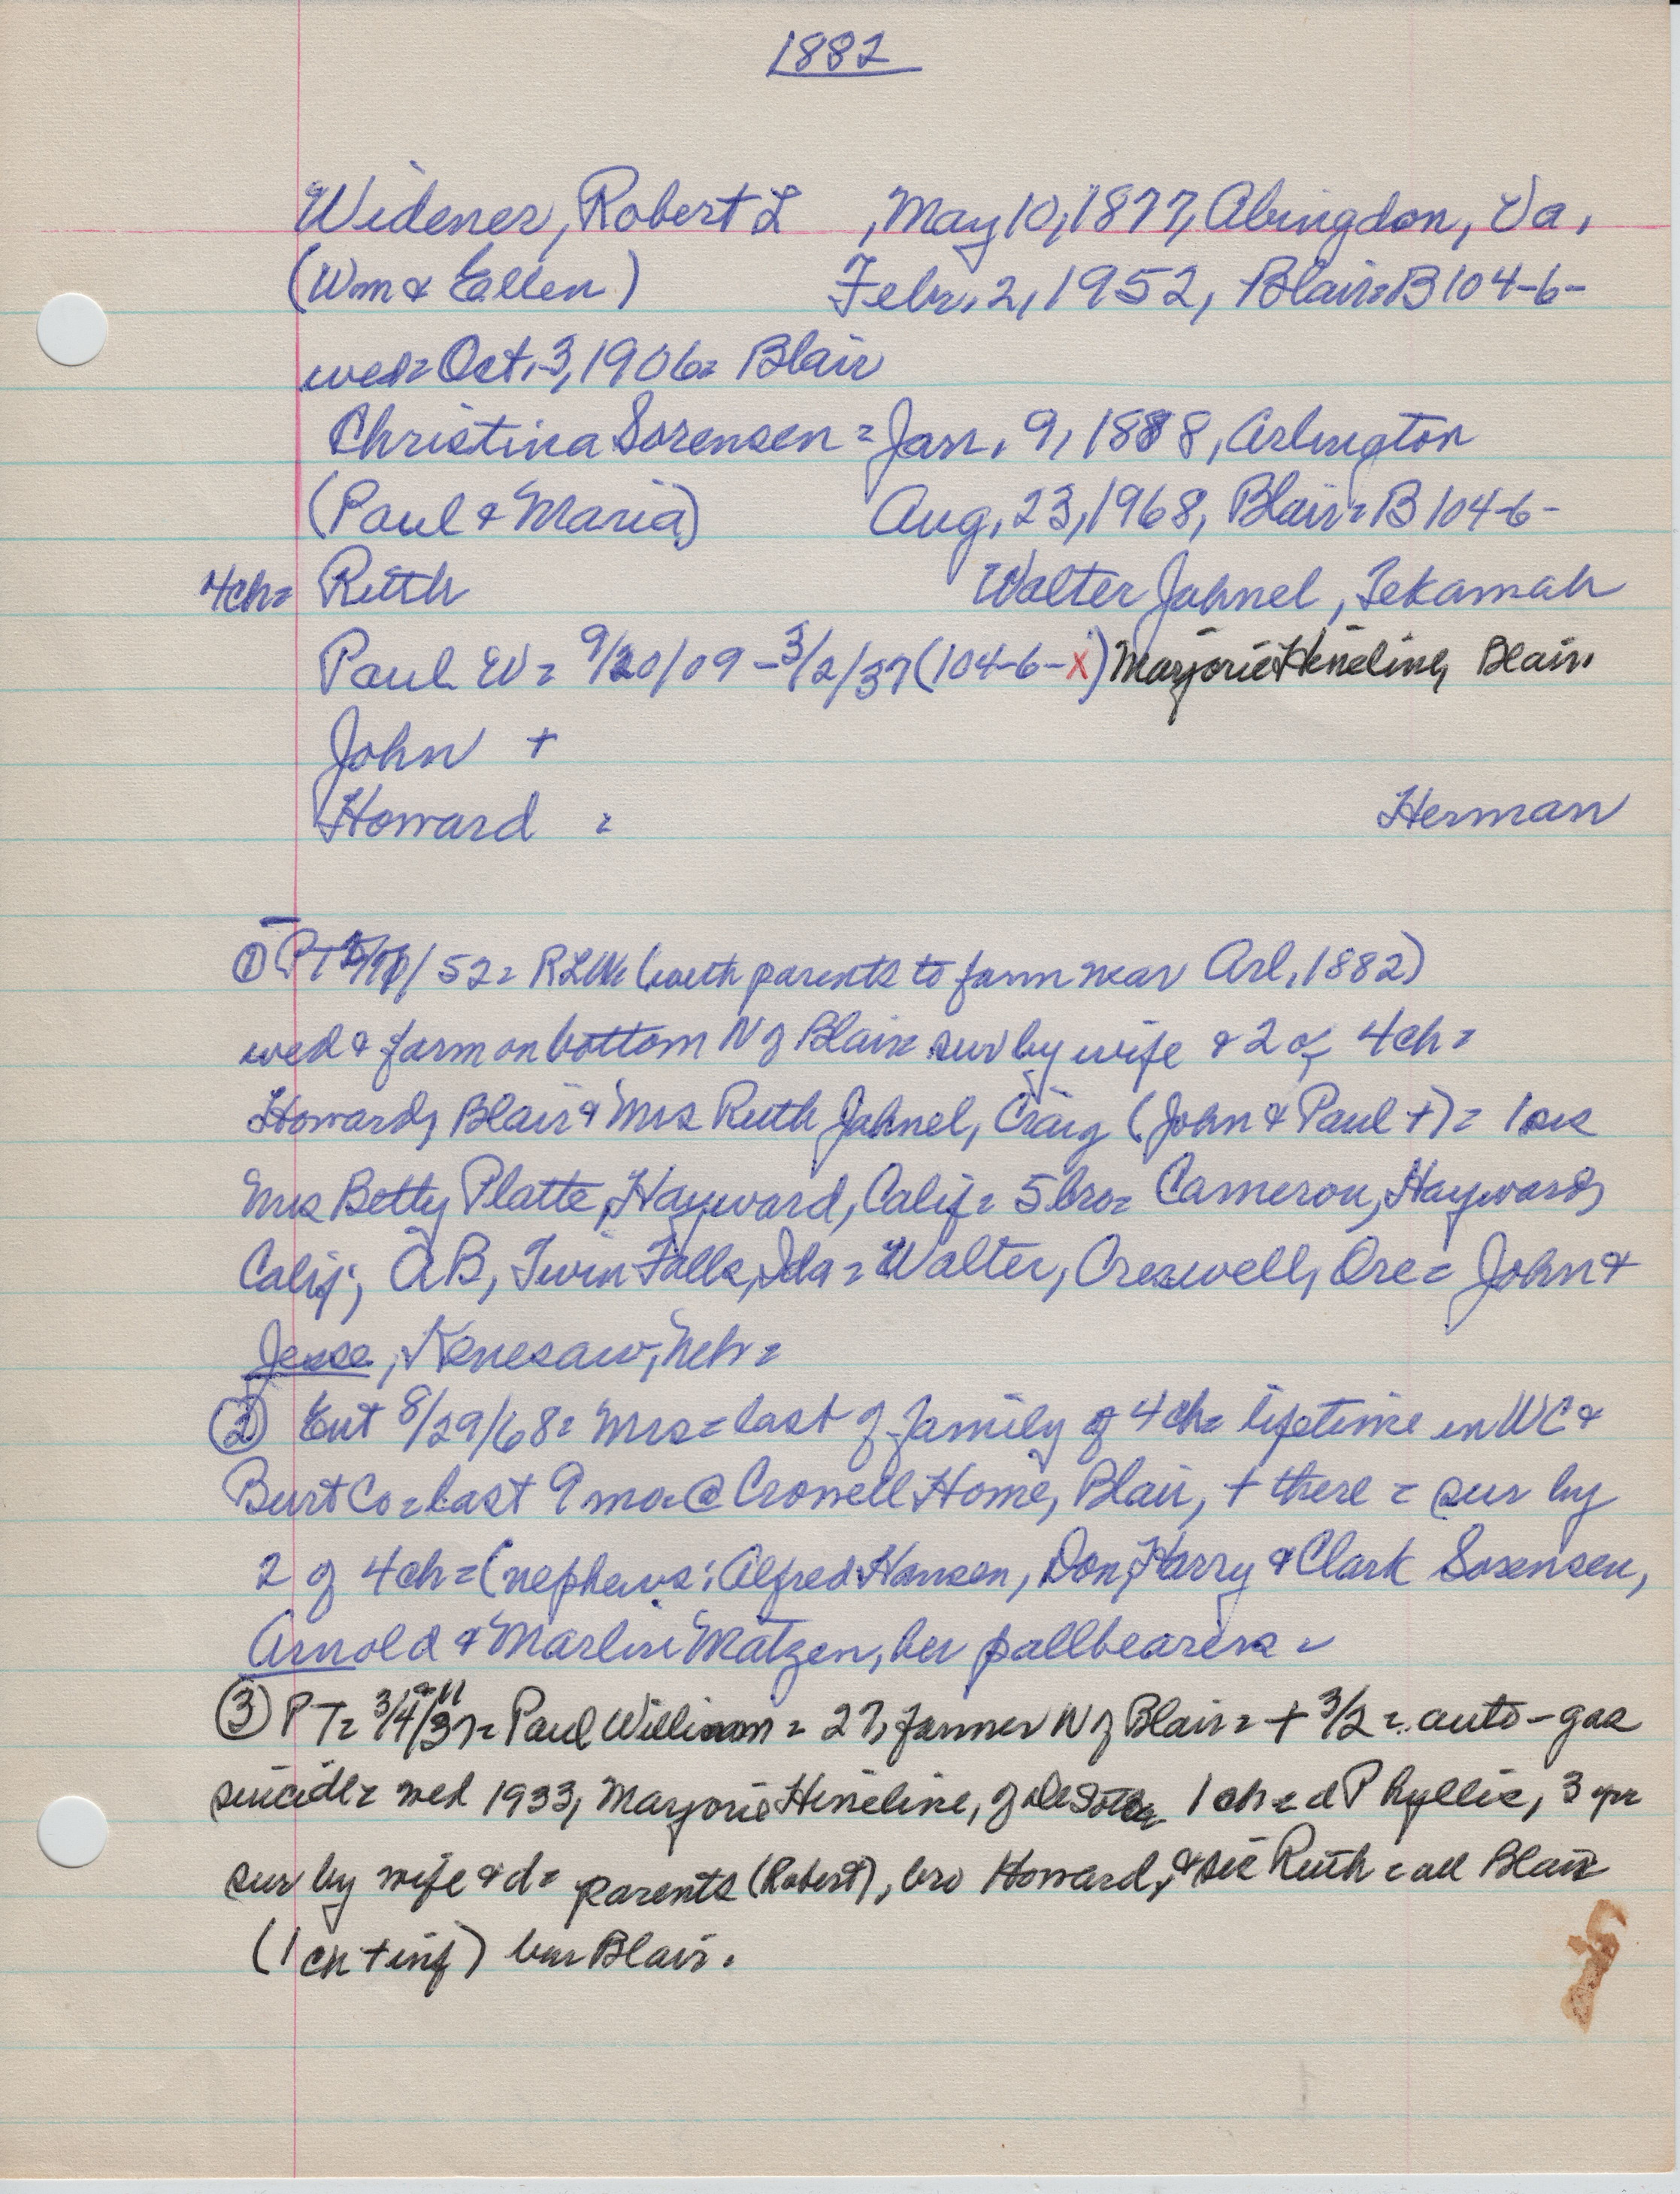 1882
Widener, Robert L , May 10, 1877, Abingdon, Va,
(Wm & Ellen) Febr. 2, 1952, Blair=B 104-6-
wed= Oct. 3, 1906= Blair
Christina Sorensen = Jan. 9, 1888, Arlington
(Paul & Maria) Aug, 23, 1968, Blair=B 104-6-
4ch= Ruth Walter Jahnel, Tekamah
Paul W= 9/20/09 - 3/2/37 (104-6-X) Marjorie Hineline, Blair.
John +
Howard = Herman
① PT /52= RLW= (with parents to farm near Arl, 1882)
wed & farm on bottom N of Blair sur by wife & 2 of 4ch=
Howard, Blair & Mrs Ruth Jahnel, Craig (John & Paul +)= 1 sis
Mrs Betty Platte, Hayward, Calif= 5 bro= Cameron, Hayward,
Calif; AB, Twin Falls, Ida= Walter, Creswell, Ore= John &
Jesse, Kenesaw, Neb=
② Ent 8/29/68= Mrs= last of family of 4ch= lifetime in WC &
Burt Co= last 9 mo= @ Crowell Home, Blair, + there = sur by
2 of 4ch= (nephews: Alfred Hansen, Don, Harry & Clark Sorensen,
Arnold & Marlin Matzen, her pallbearers=
③ PT= 3/4/37= Paul William = 27, farmer N of Blair= + 3/2= auto-gas
suicide= wed 1933, Marjorie Hineline, of DeSoto= 1 ch= d Phyllis, 3 yr
sur by wife & d= parents (Robert), bro Howard, & sis Ruth = all Blair
(1 ch + inf) bur Blair.